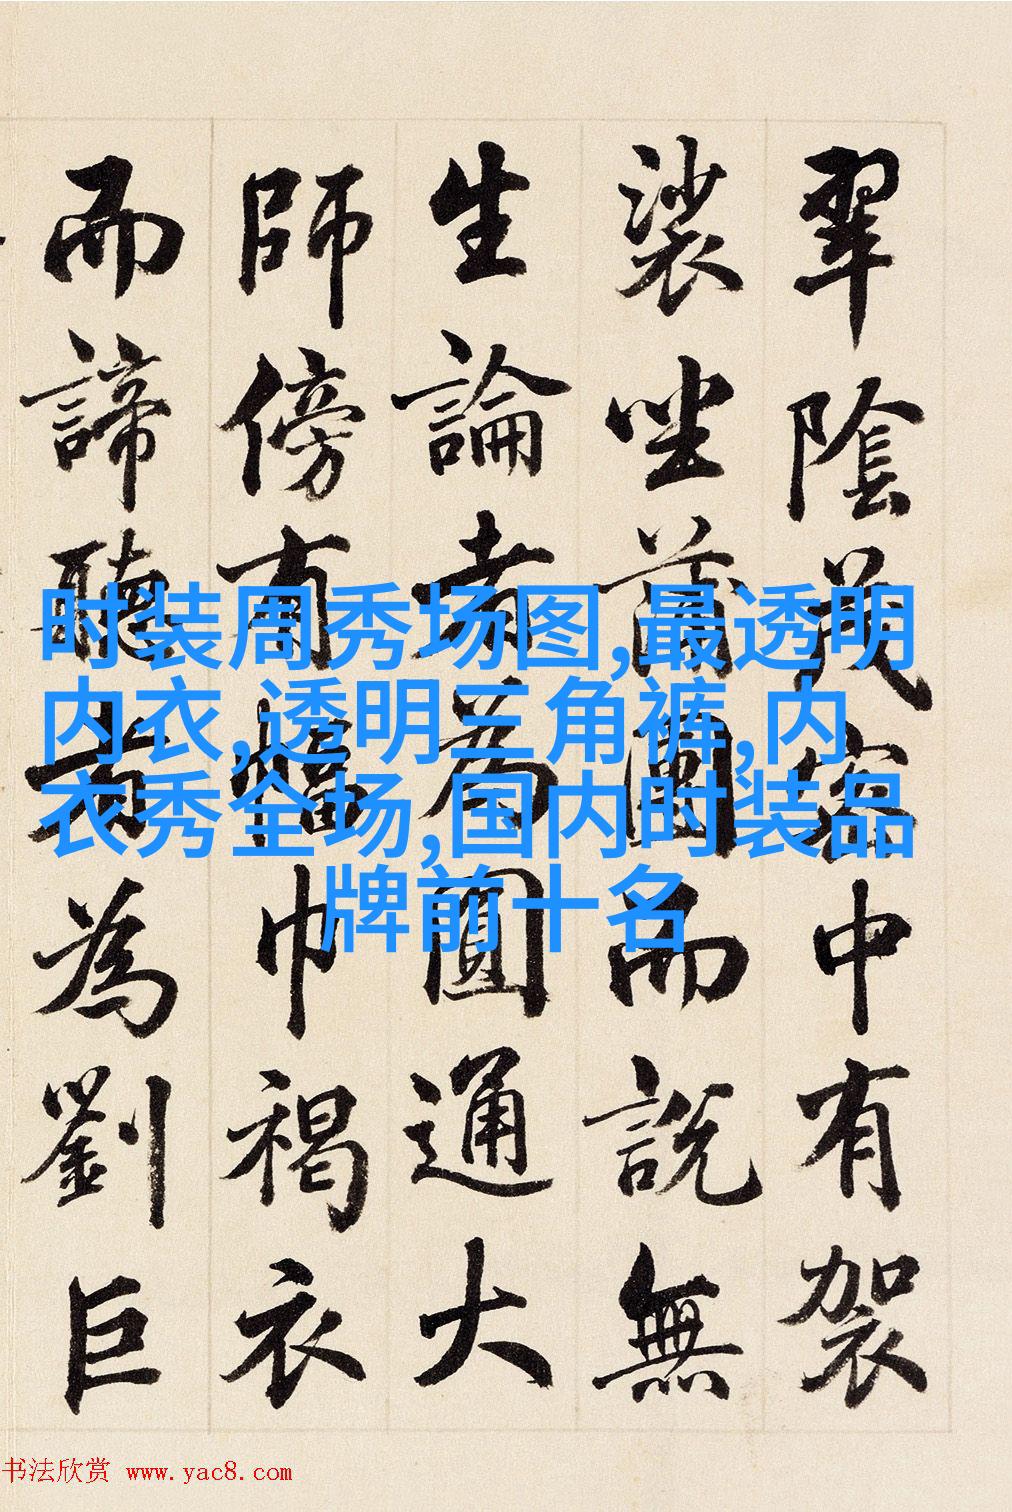 翠陰茂密中有袈
裟坐蒲團而說無
生論者為圓通大
師傍有幅巾褐衣
而諦聽者為劉巨
时装周秀场图,最透明
内衣,透明三角裤,内
衣秀全场,国内时装品
牌前十名
书法欣赏 www.yac8.com